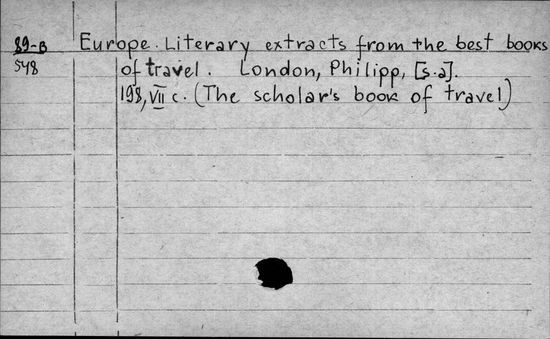 89-B Europe. Literary extracts from the best books
548 of travel. London, Philipp, [s.a].
198, VII c. (The scholar's book of travel)